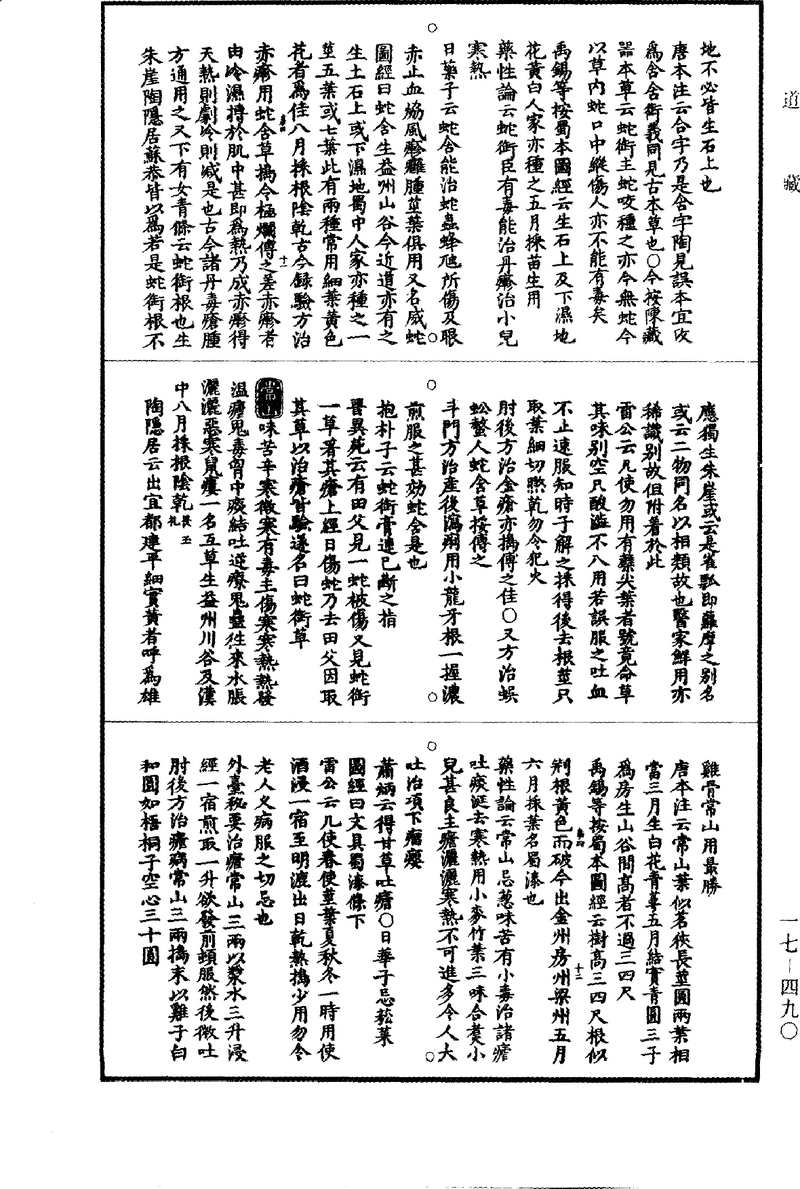 道藏
地不必皆生石上也
唐本注云合字乃是含字陶見誤本宜改
為含含銜義同見古本草也○今按陳藏
器本草云蛇銜主蛇咬種之亦令無蛇今
以草內蛇口中縱傷人亦不能有毒矣
禹錫等按蜀本圖經云生石上及下濕地
花黃白人家亦種之五月採苗生用
藥性論云蛇銜臣有毒能治丹瘮治小兒
寒熱
日華子云蛇含能治蛇蟲蜂虺所傷及眼
赤止血協風瘮癰腫莖葉俱用又名威蛇
圖經曰蛇含生益州山谷今近道亦有之
生土石上或下濕地蜀中人家亦種之一
莖五葉或七葉此有兩種當用細葉黃色
花者為佳八月採根陰乾古今録驗方治
赤瘮用蛇含草搗令極爛傅之差赤瘮者
由冷濕搏於肌中甚即為熱乃成赤瘮得
天熱則劇冷則减是也古今諸丹毒瘡腫
方通用之又下有女青條云蛇銜根也生
朱崖陶隱居蘇恭皆以為若是蛇銜根不
應獨生朱崖或云是雀瓢即蘿摩之别名
或云二物同名以相類故也醫家鮮用亦
稀識别故但附著於此
雷公云凡使勿用有蘗尖葉者號竟命草
其味别空只酸澁不入用若誤服之吐血
不止速服知時子解之採得後去根莖只
取葉細切㬠乾勿令犯火
肘後方治金瘡亦搗傅之佳○又方治蜈
蚣螫人蛇含草挼傅之
斗門方治産後瀉痢用小龍牙根一握濃
煎服之甚効蛇含是也
抱朴子云蛇銜膏連已斷之指
晉異苑云有田父見一蛇被傷又見蛇銜
一草著其瘡上經日傷蛇乃去田父因取
其草以治瘡皆驗遂名曰蛇銜草
常山味苦辛寒微寒有毒主傷寒寒熱熱發
温瘧鬼毒胷中痰結吐逆療鬼蠱往來水脹
灑灑惡寒鼠瘻一名互草生益州川谷及漢
中八月採根陰乾畏玉札
陶隱居云出宜都建平細實黃者呼為雄
雞骨常山用最勝
唐本注云常山葉似茗狹長莖圓兩葉相
當三月生白花青蕚五月結實青圓三子
為房生山谷間高者不過三四尺
禹錫等按蜀本圖經云樹高三四尺根似
荆根黃色而破今出金州房州梁州五月
六月採葉名蜀漆也
藥性論云常山忌葱味苦有小毒治諸瘧
吐痰涎去寒熱用小麥竹葉三味合煑小
兒甚良主瘧灑灑寒熱不可進多令人大
吐治項下瘤癭
蕭炳云得甘草吐瘧○日華子忌菘菜
圖經曰文具蜀漆條下
雷公云凡使春使莖葉夏秋冬一時用使
酒浸一宿至明漉出日乾熬搗少用勿令
老人乆病服之切忌也
外臺秘要治瘧常山三兩以漿水三升浸
經一宿煎取一升欲發前頓服然後微吐
肘後方治瘧病常山三兩搗末以雞子白
和圓如梧桐子空心三十圓
一七－四九〇